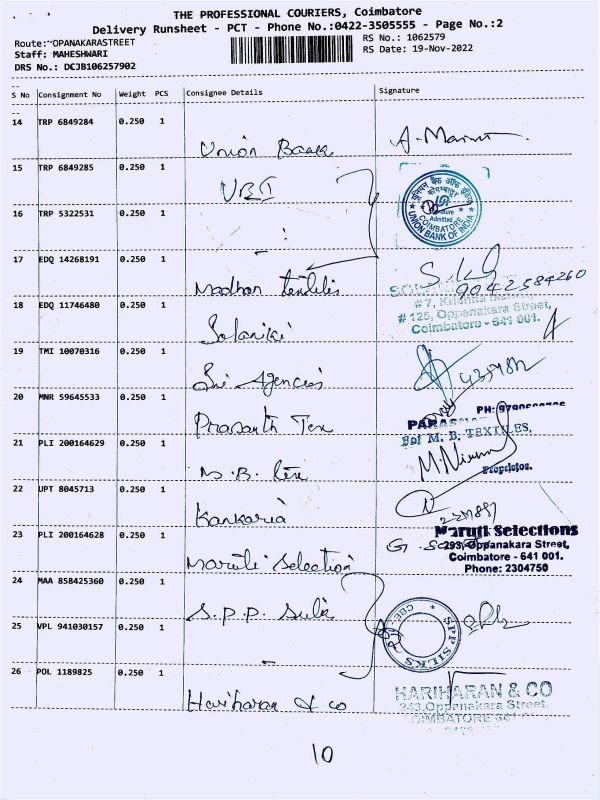 THE PROFESSIONAL COURIERS, Coimbatore
Delivery Runsheet - PCT - Phone No.:0422-3505555 - Page No.:2
Route: OPANAKARASTREET
RS No.: 1062579
Staff: MAHESHWARI
RS Date: 19-Nov-2022
DRS No.: DCJB106257902
S No Consignment No Weight PCS Consignee Details Signature
14 TRP 6849284 0.250 1 Union Bank
15 TRP 6849285 0.250 1 UBI
यूनियन बैंक ऑफ
COIMBATORE
UNION BANK OF INDIA
16 TRP 5322531 0.250 1
17 EDQ 14268191 0.250 1 Madhan textiles
9042584260
# 126, Oppanakara Street,
Coimbatore - 641 001.
18 EDQ 11746480 0.250 1 Solanki
19 TMI 10070316 0.250 1 Sri Agencies
20 MNR 59645533 0.250 1 Prasanth Tex
For M. B. TEXTILES,
Proprietor.
21 PLI 200164629 0.250 1 M.B. Tex
22 UPT 8045713 0.250 1 Kankaria
Maruti Selections
293, Oppanakara Street,
Coimbatore - 641 001.
Phone: 2304750
23 PLI 200164628 0.250 1 Maruti Selection
24 MAA 858425360 0.250 1 S.P.P. Silk
SPP SILKS
25 VPL 941030157 0.250 1
26 POL 1189825 0.250 1 Hariharan & co
HARIHARAN & CO
243, Oppanakara Street.
10